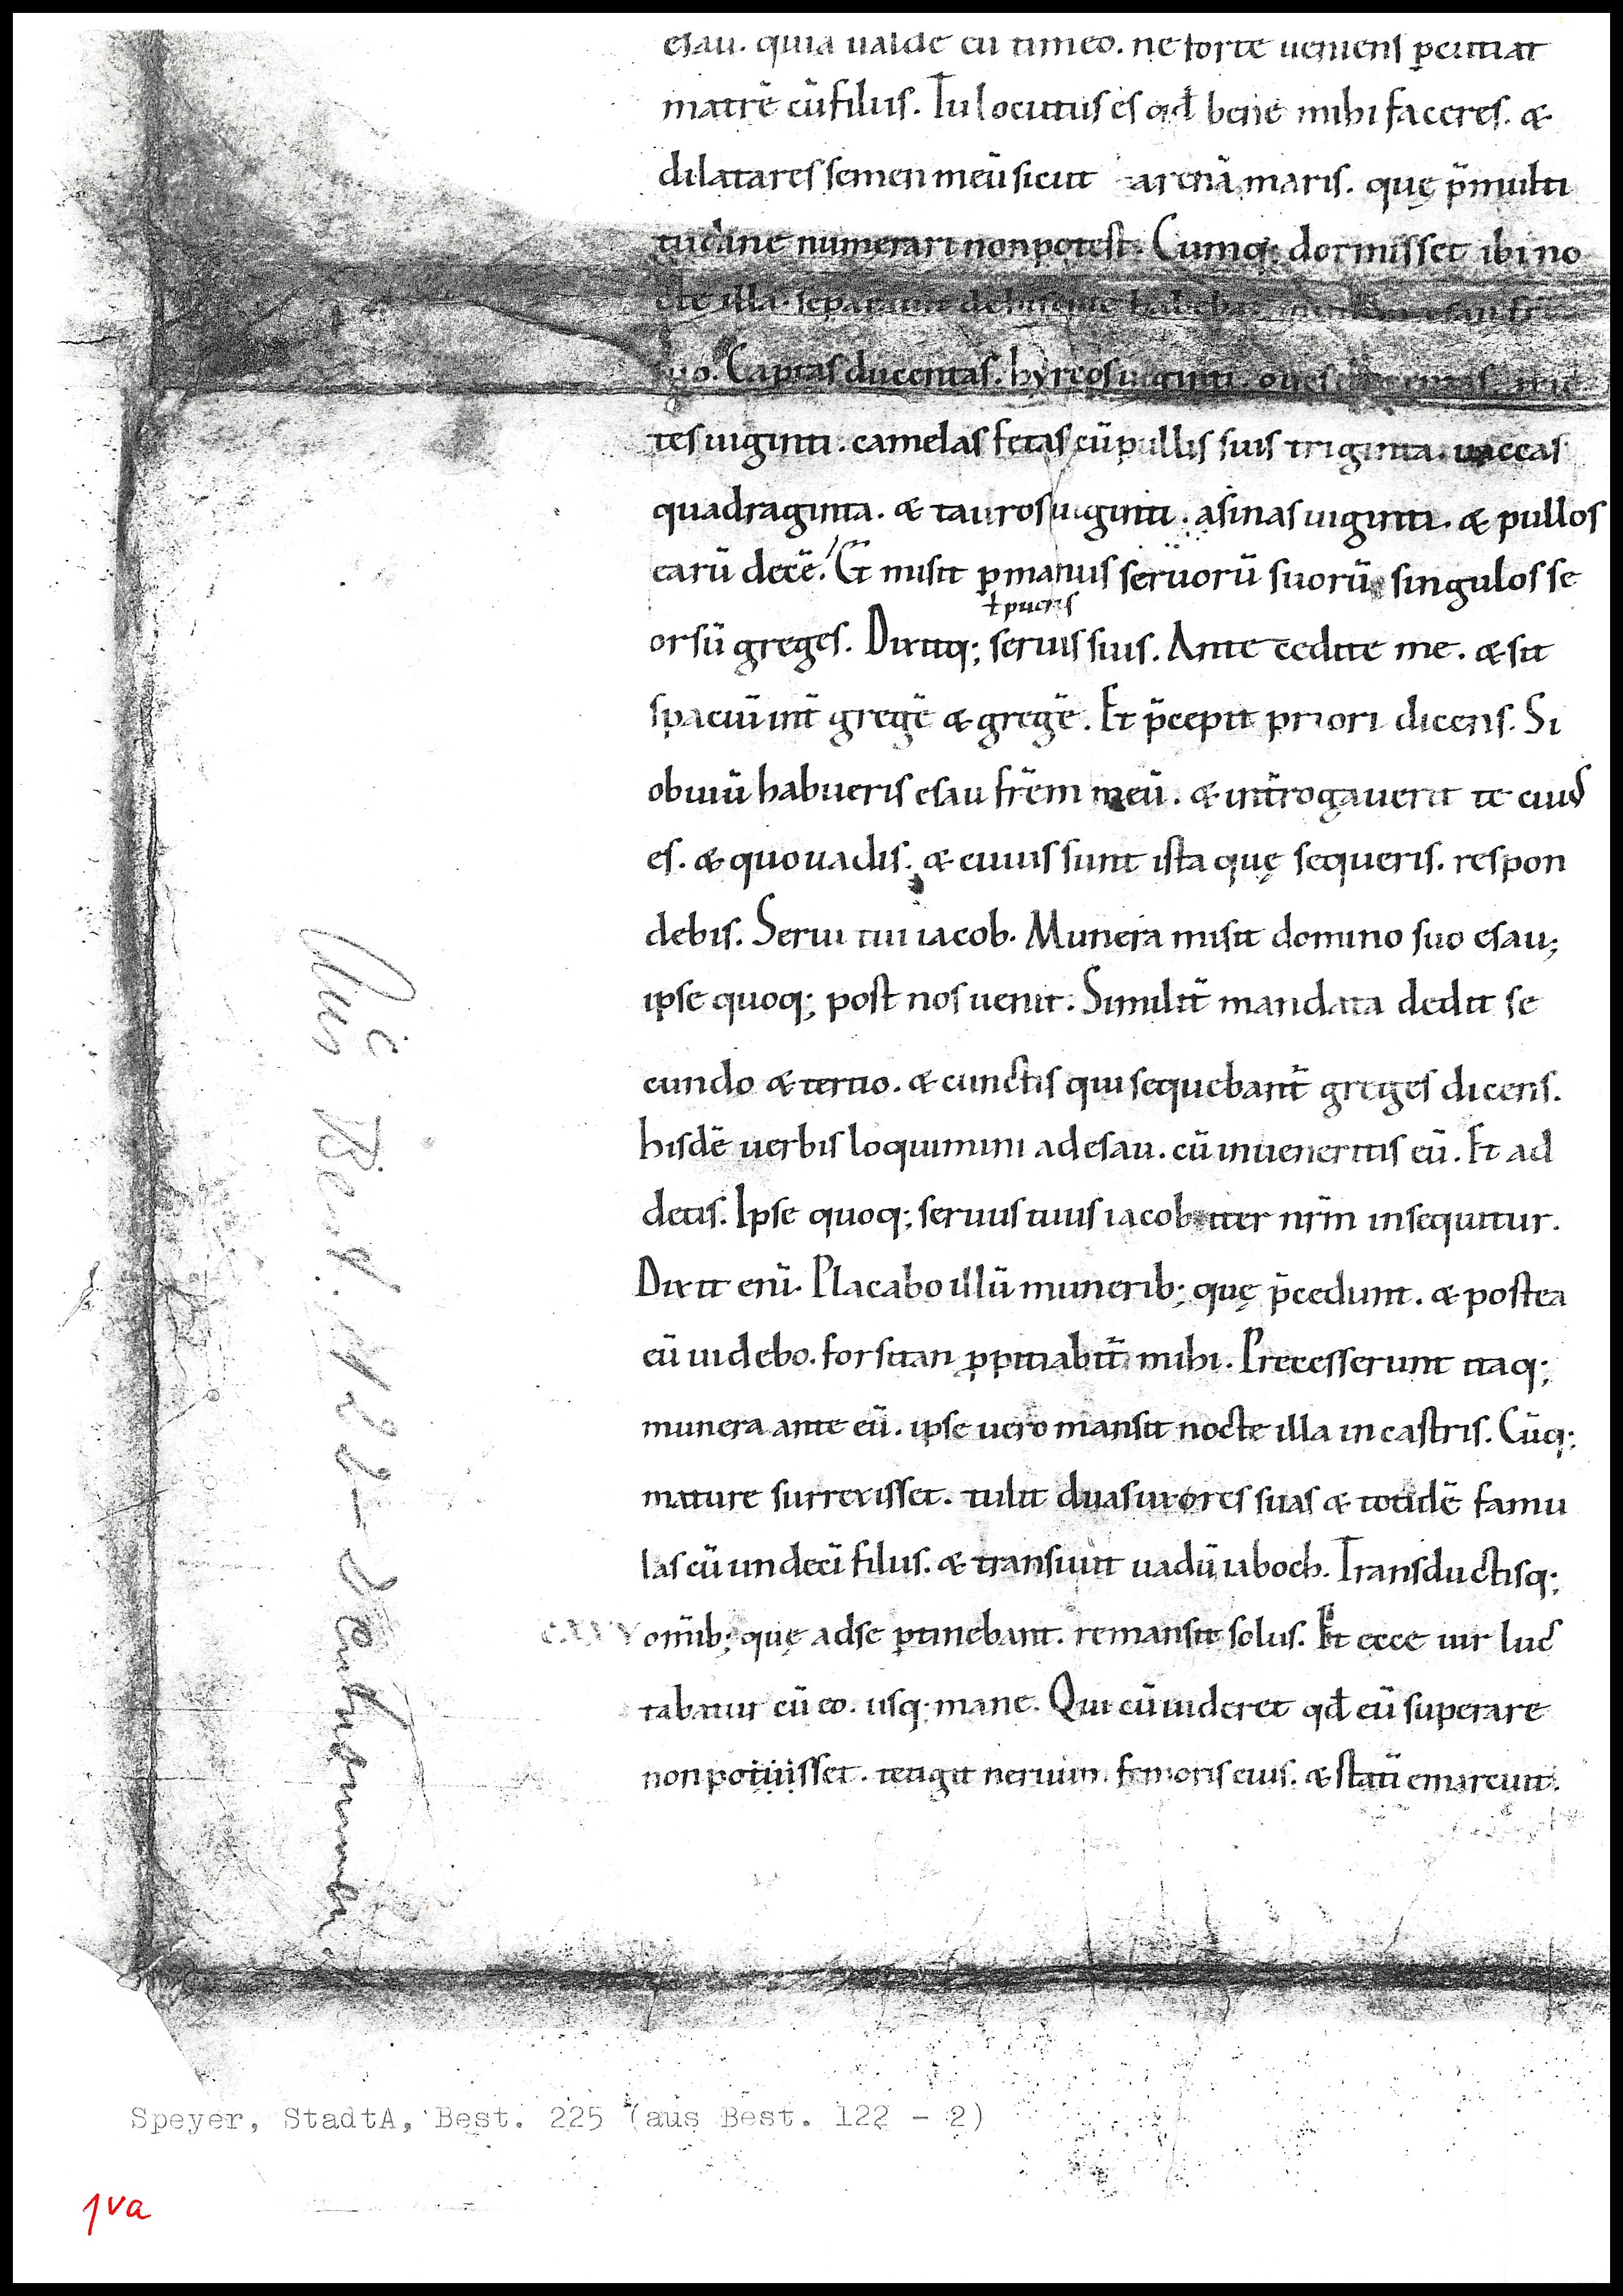 esau. quia ualde eū timeo. ne forte ueniens ꝑcutiat
matrē cū filiis. Tu locutus es qđ bene mihi faceres. &
dilatares semen meū sicut arenā maris. quę p̄ multi
tudine numerari non potest. Cumq; dormisset ibi no
cte illa. separauit de his que habebat esau fr̄i
suo. Capras ducentas. hyrcos uiginti. oues ducentas. arie
tes uiginti. camelas fetas cū pullis suis triginta. uaccas
quadraginta. & tauros uiginti. asinas uiginti. & pullos
earū decē. Et misit ꝑ manus seruorū suorū singulos se
ł pueris
orsū greges. Dixitq; seruis suis. Ante cedite me. & sit
spaciū int̄ gregē & gregē. Et p̄cepit priori dicens. Si
obuiū habueris esau fr̄em meū. & int̄rogauerit te cuius
es. & quo uadis. & cuius sunt ista quę sequeris. respon
debis. Serui tui iacob. Munera misit domino suo esau;
ipse quoq; post nos uenit. Similit̄ mandata dedit se
cundo & tertio. & cunctis qui sequebant̄ greges dicens.
hisdē uerbis loquimini ad esau. cū inueneritis eū. Et ad
detis. Ipse quoq; seruus tuus iacob iter nr̄m insequitur.
Dixit enī. Placabo illū munerib; quę p̄cedunt. & postea
eū uidebo. forsitan ꝓpitiabit̄ mihi. Precesserunt itaq;
munera ante eū. ipse uero mansit nocte illa in castris. Cūq;
mature surrexisset. tulit duas uxores suas & totidē famu
las cū undecī filiis. & transiuit uadū iaboch. Transductisq;
om̄ib; quę ad se ꝑtinebant. remansit solus. Et ecce uir luc
tabatur cū eo. usq; mane. Qui cū uideret qđ eū superare
non potuisset. tetigit neruum femoris eius. & statī emarcuit.
Aus Best. 122-2 entnommen
Speyer, StadtA, Best. 225 (aus Best. 122 - 2)
1va